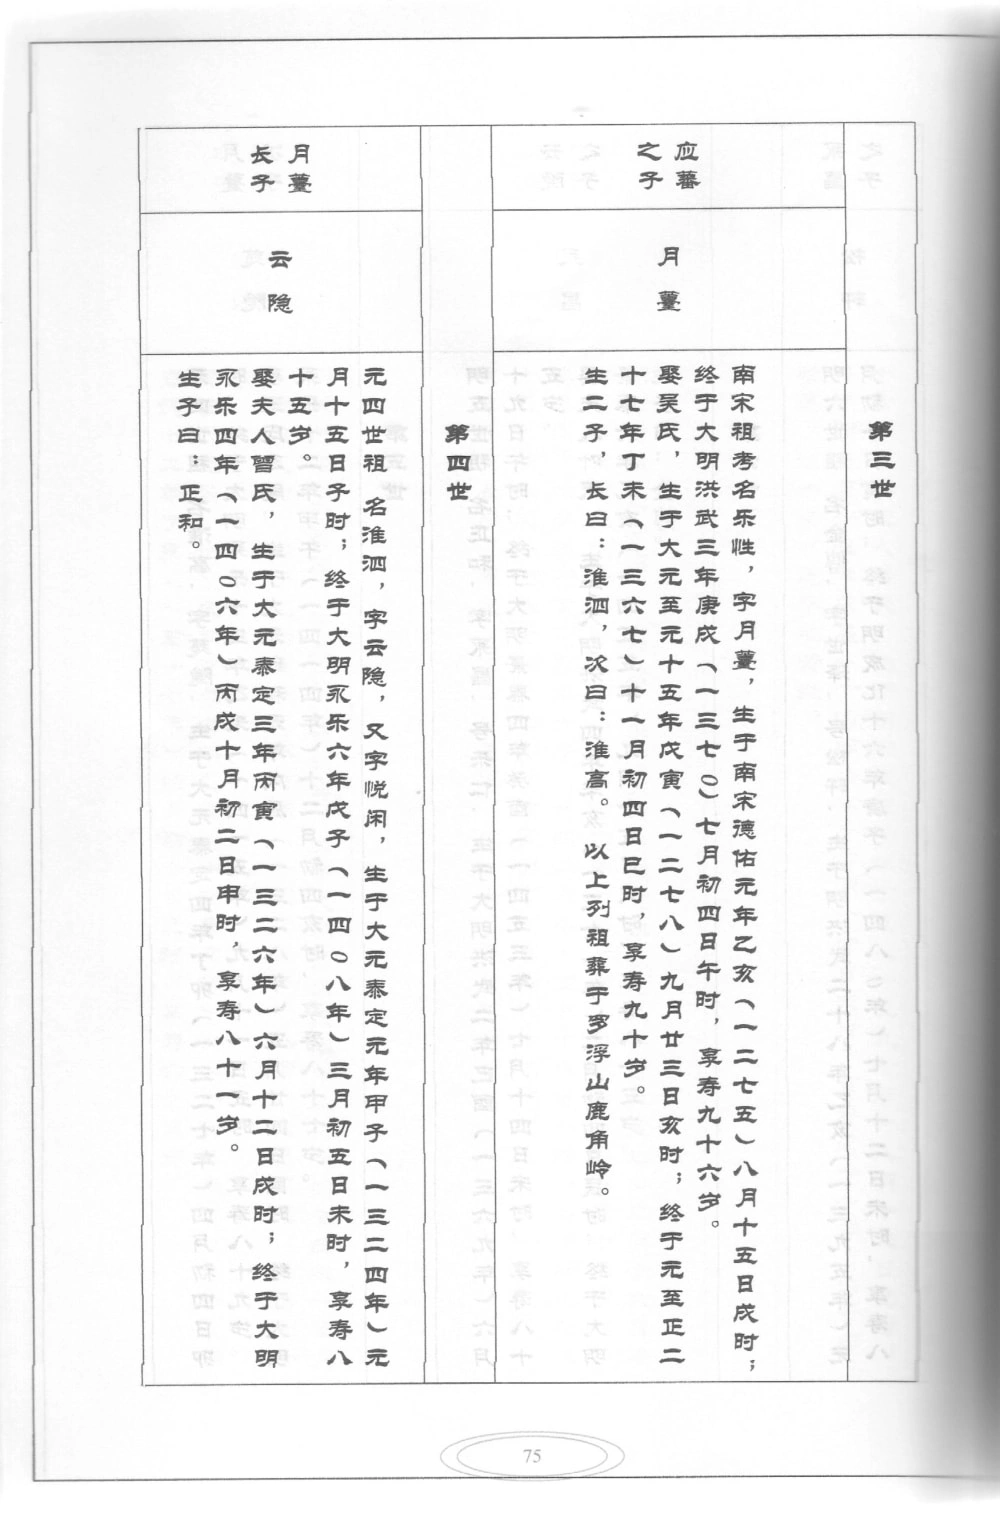 第三世
应蕃
之子
月薹
南宋祖考名乐性，字月薹，生于南宋德佑元年乙亥（一二七五）八月十五日戌时；
终于大明洪武三年庚戌（一三七〇）七月初四日午时，享寿九十六岁。
娶吴氏，生于大元至元十五年戊寅（一二七八）九月廿三日亥时；终于元至正二
十七年丁未（一三六七）十一月初四日巳时，享寿九十岁。
生二子，长曰：淮泗，次曰：淮高。以上列祖葬于罗浮山鹿角岭。
第四世
月薹
长子
云隐
元四世祖 名淮泗，字云隐，又字悦闲，生于大元泰定元年甲子（一三二四年）元
月十五日子时；终于大明永乐六年戊子（一四〇八年）三月初五日未时，享寿八
十五岁。
娶夫人曾氏，生于大元泰定三年丙寅（一三二六年）六月十二日戌时；终于大明
永乐四年（一四〇六年）丙戌十月初二日申时，享寿八十一岁。
生子曰；正和。
75